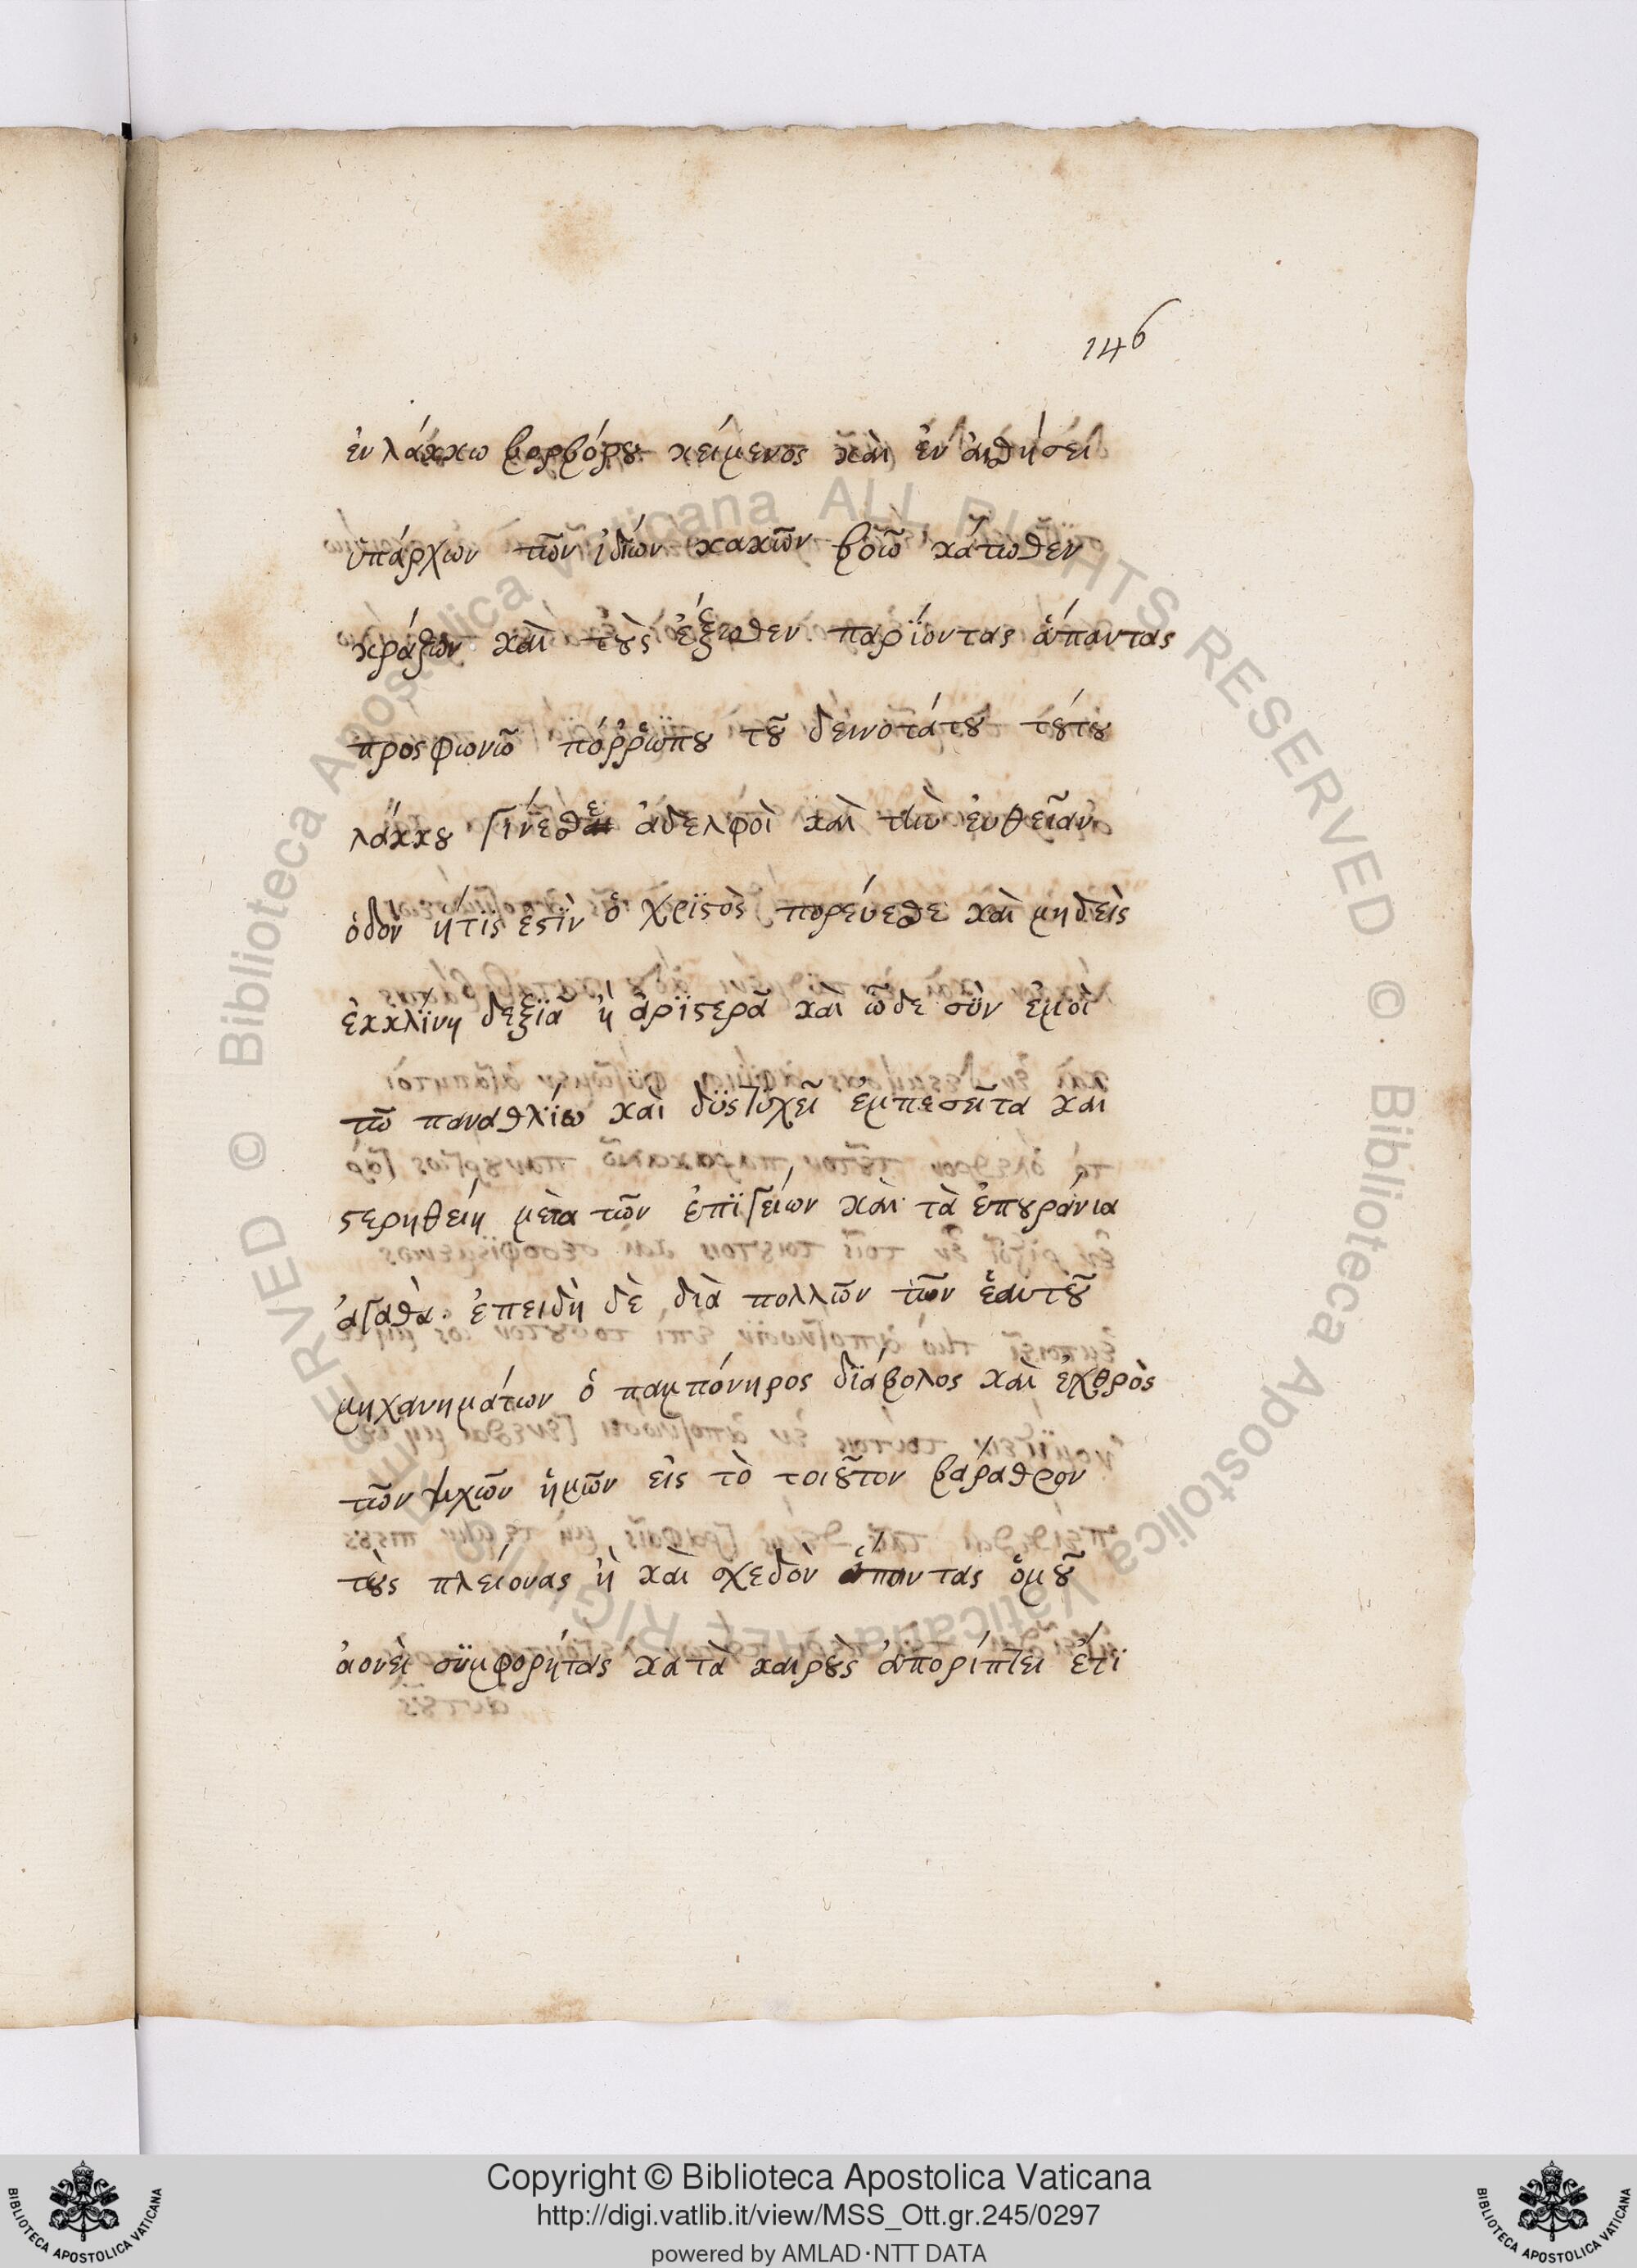 146
ἐν λάκκω βορβόρου κείμενος καὶ ἐν αἰσθήσει
ὑπάρχων τῶν ἰδίων κακῶν βοῶ κάτωθεν
κράζων καὶ τοὺς ἔξωθεν παρϊόντας ἅπαντας
προσφωνῶ πόῤῥωπου τοῦ δεινοτάτου τούτου
λάκκου γίνεσθε ἀδελφοὶ καὶ τὴν εὐθεῖαν
ὁδὸν ἥτϊς ἐστὶν ὁ χριστὸς πορεύεσθε καὶ μηδεὶς
ἐκκλίνη δεξϊᾶ ἢ ἀρϊστερᾶ καὶ ὧδε σὺν ἐμοὶ
τῶ παναθλίω καὶ δϋστυχεῖ ἐμπεσεῖτα καὶ
στερηθείη μετα τῶν ἐπϊγείων καὶ τὰ ἐπουράνια
ἀγαθὰ. ἐπειδὴ δὲ διὰ πολλῶν τῶν ἑαυτοῦ
μηχανημάτων ὁ παμπόνηρος διάβολος καὶ ἐχθρὸς
τῶν ψυχῶν ἡμῶν εἰς τὸ τοιοῦτον βάραθρον
τοὺς πλείονας ἢ καὶ σχεδὸν ἅπαντας ὁμοῦ
συμφορήτας κατὰ καιροὺς ἀπορίπτει ἔτϊ
Copyright © Biblioteca Apostolica Vaticana
http://digi.vatlib.it/view/MSS_Ott.gr.245/0297
powered by AMLAD·NTT DATA
BIBLIOTECA APOSTOLICA VATICANA
BIBLIOTECA APOSTOLICA VATICANA